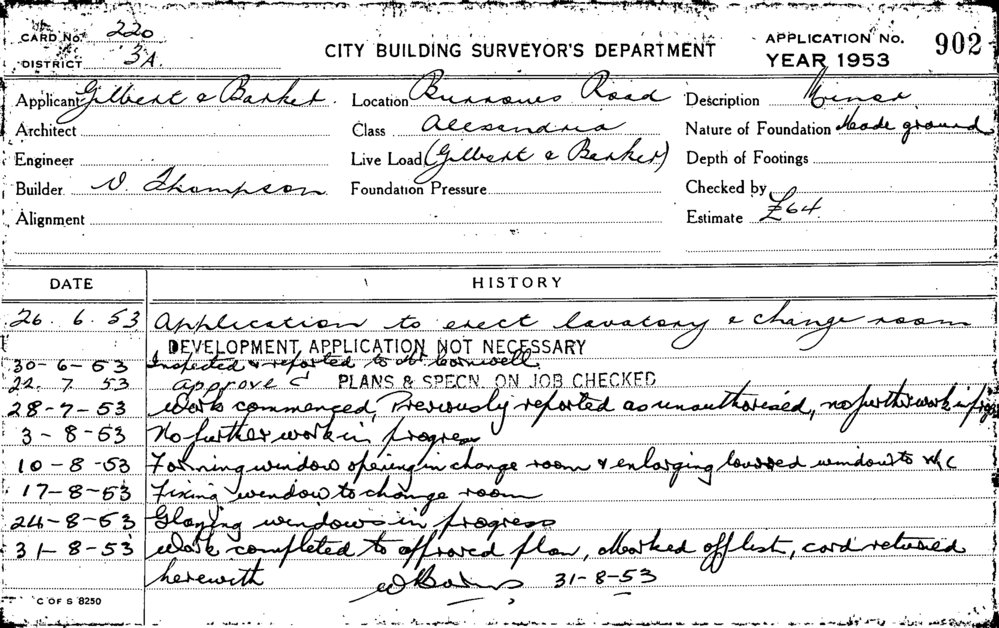 CARD No. 220
DISTRICT 3A
CITY BUILDING SURVEYOR'S DEPARTMENT
APPLICATION No. 902
YEAR 1953
Applicant Gilbert & Barker Location Burrows Road Description Minor
Architect Class Alexandria Nature of Foundation Made ground
Engineer Live Load (Gilbert & Barker) Depth of Footings
Builder V. Thompson Foundation Pressure Checked by
Alignment Estimate £64
DATE HISTORY
26. 6. 53 Application to erect lavatory & change room
DEVELOPMENT APPLICATION NOT NECESSARY
30-6-53 Inspected & reported to Mr Cornwell
22. 7. 53 approved PLANS & SPECN. ON JOB CHECKED
28-7-53 Work commenced, Previously reported as unauthorised, no further work in
3-8-53 No further work in progress
10-8-53 Forming window opening in change room & enlarging louvred window to W/C
17-8-53 Fixing window to change room
24-8-53 Glazing windows in progress
31-8-53 Work completed to approved plan, Marked off list, card returned
herewith 31-8-53
C OF S 8250